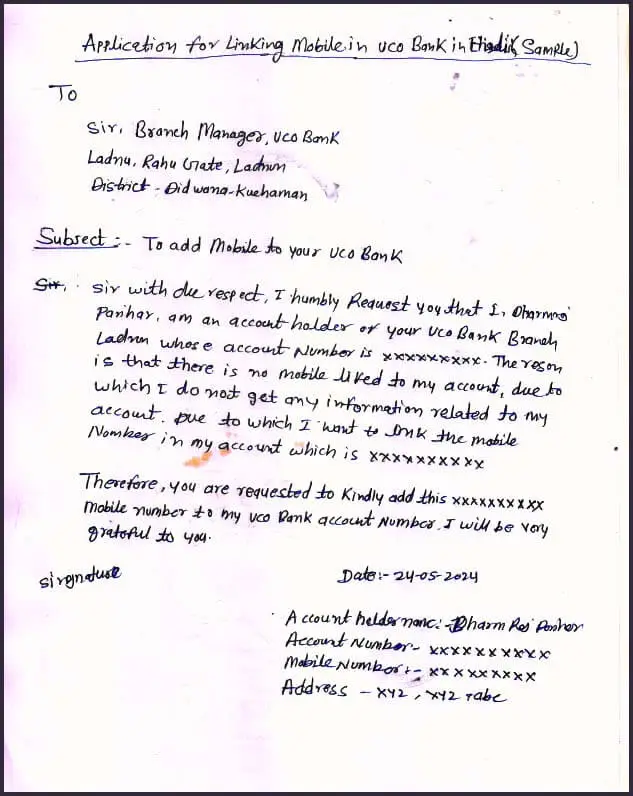 Application for Linking Mobile in UCO Bank in Hindi (Sample)
To
Sir, Branch Manager, UCO Bank
Ladnu, Rahu Gate, Ladnun
District - Didwana-Kuchaman
Subsect :- To add Mobile to your UCO Bank
Sir, sir with due respect, I humbly Request you that I, Dharmraj
Parihar, am an account holder of your UCO Bank Branch
Ladnun whose account Number is xxxxxxxxx. The reson
is that there is no mobile liked to my account, due to
which I do not get any information related to my
account. Due to which I want to link the mobile
Nomber in my account which is xxxxxxxxxx
Therefore, you are requested to kindly add this xxxxxxxxxx
Mobile number to my UCO Bank account Number. I will be very
grateful to you.
sirgnature
Date:- 24-05-2024
Account holder name:- Dharm Raj Parihar
Account Number - xxxxxxxxxx
Mobile Number:- xxxxxxxxx
Address - XYZ, XYZ, abc